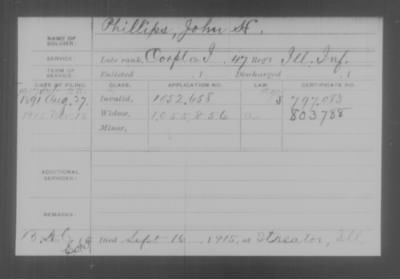 Phillips, John H.
NAME OF SOLDIER:
SERVICE:
Late rank, Corpl Co. I, 47 Reg't Ill. Inf.
TERM OF SERVICE:
Enlisted , 1 Discharged , 1
DATE OF FILING. CLASS. APPLICATION NO. LAW. CERTIFICATE NO.
1891 Aug. 27. Invalid, 1052.658 797.083
1915 Widow, 1,055,856 803788
Minor,
ADDITIONAL SERVICES:
REMARKS:
Died Sept 16, 1915, at Streator, Ill.